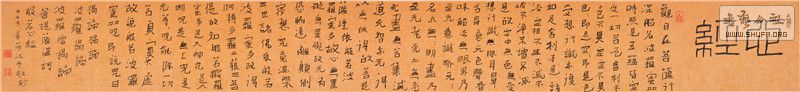 心經
觀自在菩薩行
深般若波羅蜜多
時照見五蘊皆空
度一切苦厄舍利子
色不異空空不異
色色即是空空即是
色受想行識亦復
如是舍利子是諸
法空相不生不滅
不垢不淨不增不減
是故空中無色無受
想行識無眼耳鼻舌
身意無色聲香
味觸法無眼界乃
至無意識界無
無明亦無無明盡乃
至無老死亦無老死
盡無苦集滅
道無智亦無得
以無所得故菩提
薩埵依般若波
羅蜜多故心無罣
礙無罣礙故無有
恐怖遠離顛倒夢
想究竟涅槃
三世諸佛依般若
波羅蜜多故得
阿耨多羅三藐三菩
提故知般若波羅
蜜多是大神咒
是大明咒是無上
咒是無等等咒能除一切
苦真實不虛
故說般若波羅蜜
多咒即說咒曰
揭諦揭諦
波羅揭諦
波羅僧揭諦
菩提薩婆訶
般若心經
WWW.SHUFA.ORG